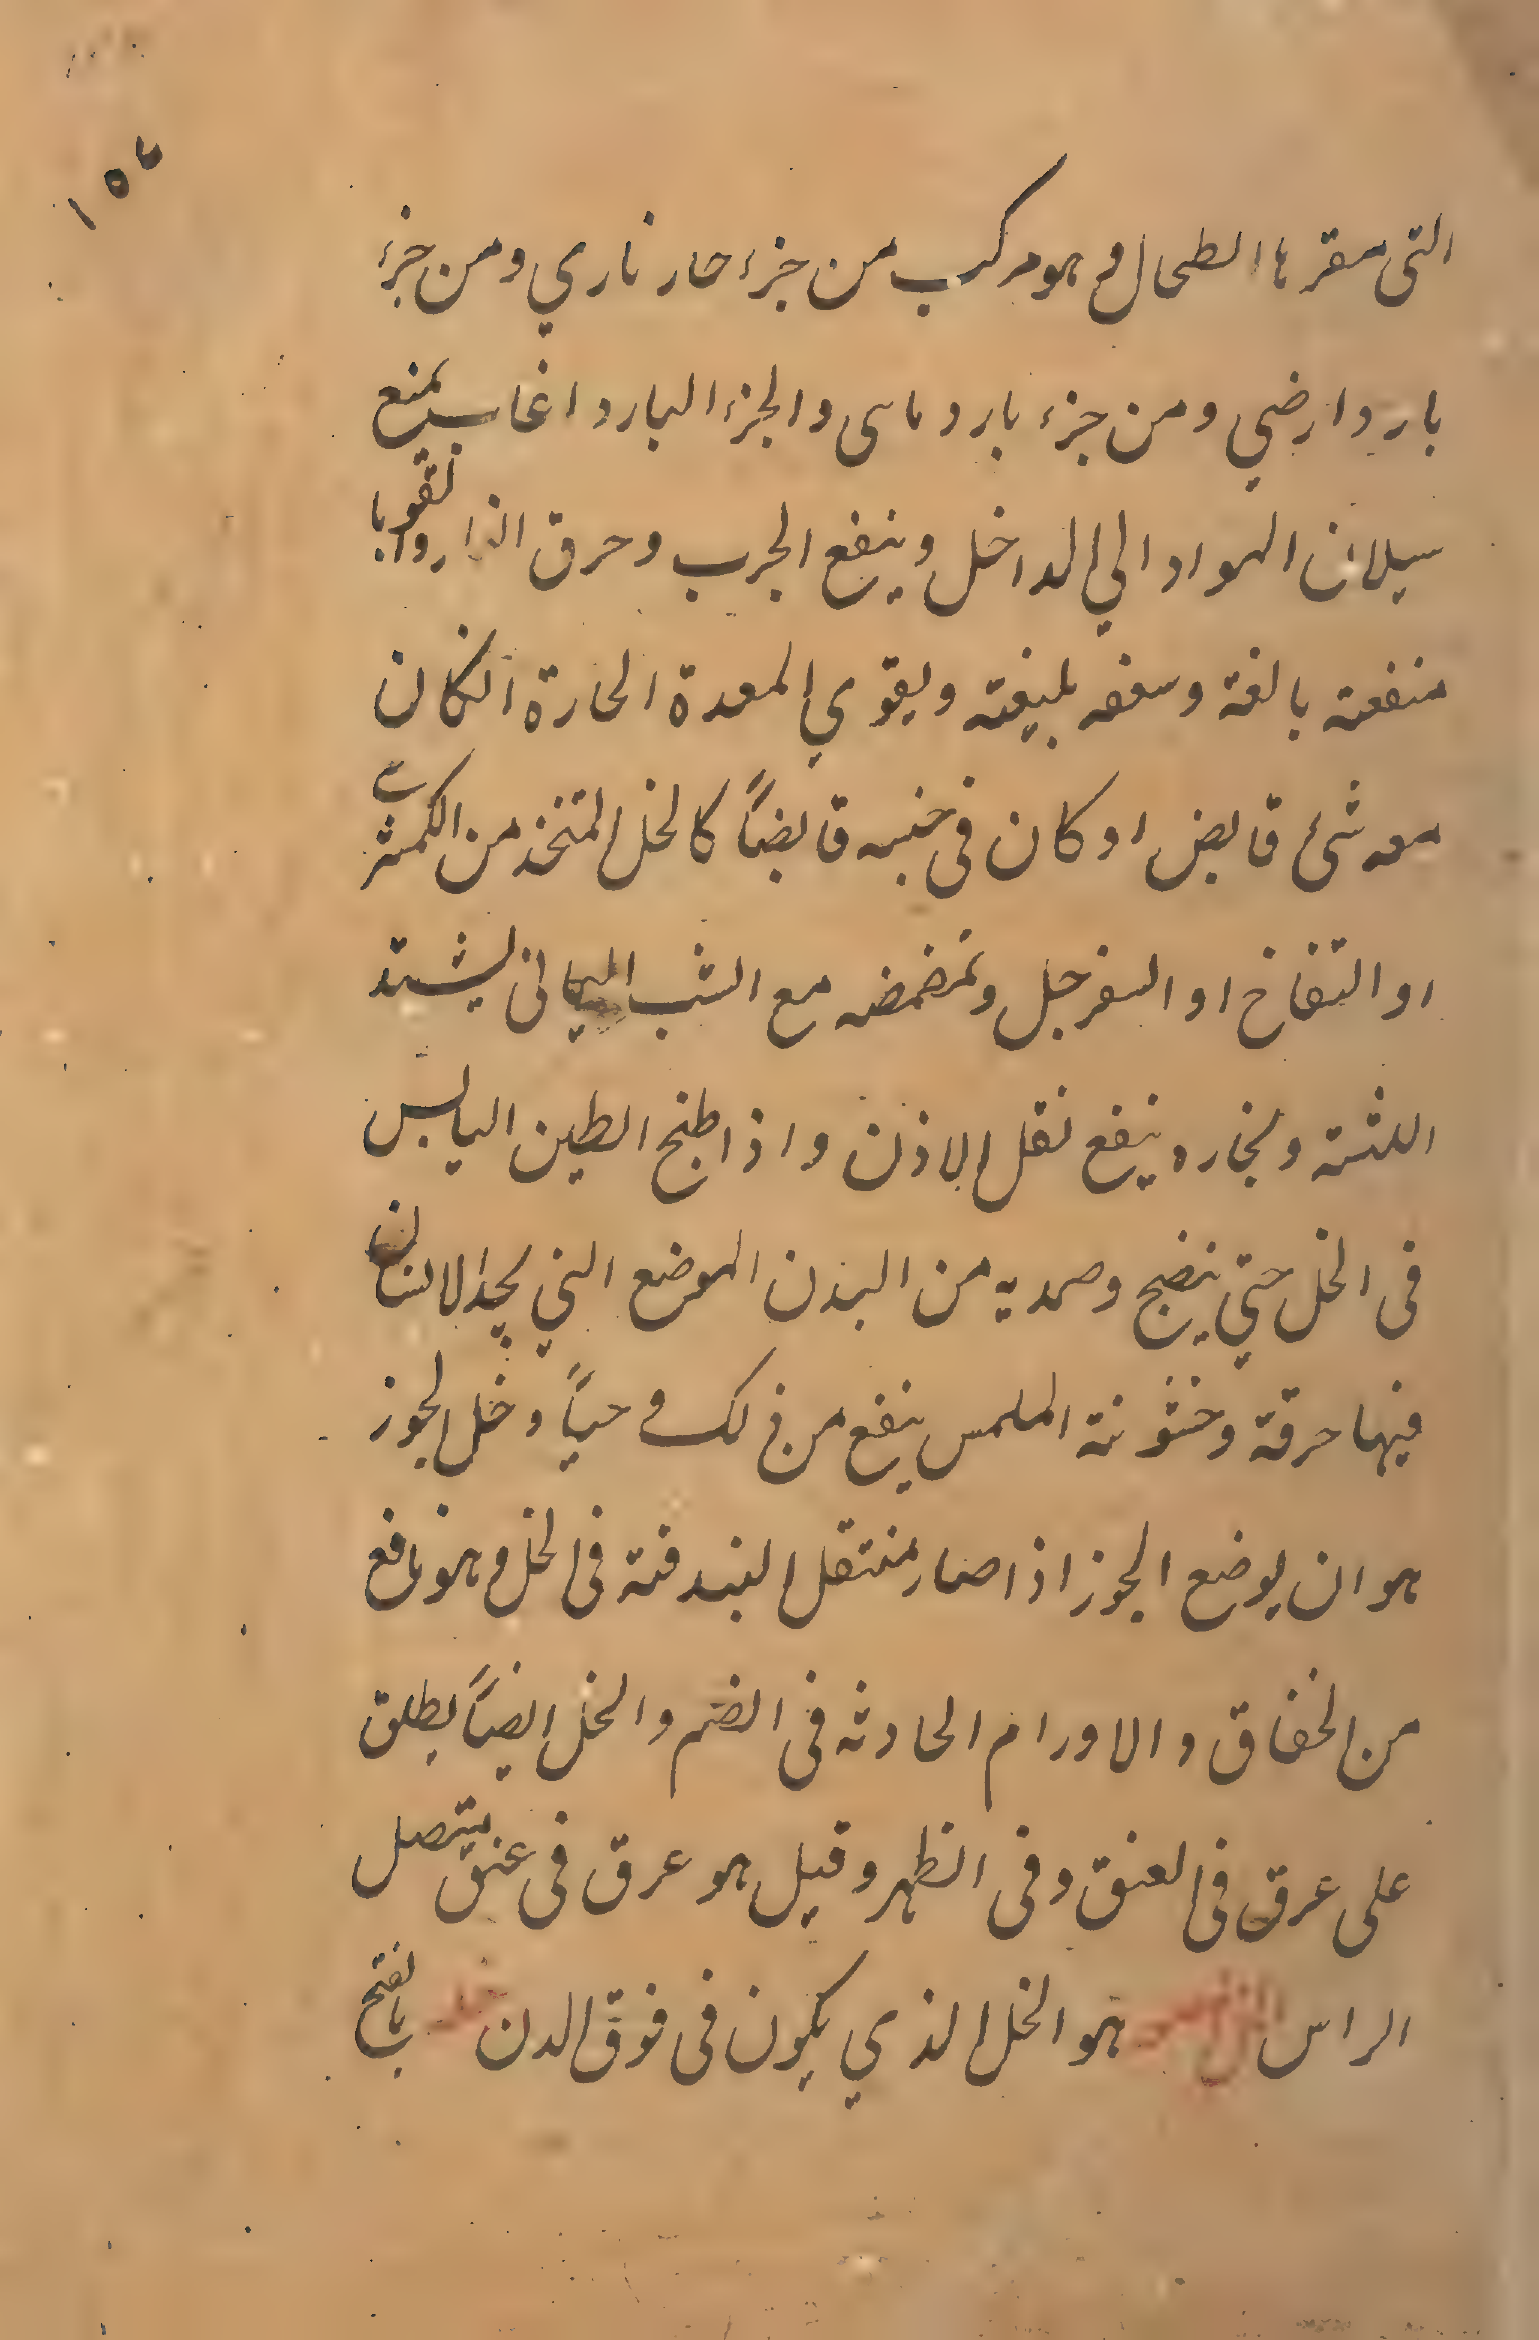 ١٥٧
التى مقرها الطحال وهو مركب من جزء حار ناري ومن جزء
بارد ارضي ومن جزء بارد مائى والجزء البارد اغلب يمنع
سيلان المواد الي الداخل وينفع الجرب وحرق النار والقوبا
منفعته بالغة وسعفه بليغته ويقوي المعدة الحارة ان كان
معه شئ قابض او كان فى جنسه قابضاً كالخل المتخذ من الكمثرى
او التفاح او السفرجل وتمضمضه مع الشب اليمانى ليشتد
اللثته وبخاره ينفع ثقل الاذن واذا طبخ الطين اليابس
فى الخل حتي ينضج وضمد به من البدن الموضع التي يجد الانسان
فيها حرقة وخشونة الملمس ينفع من ذلك وحياً وخل الجوز
هو ان يوضع الجوز اذا صار بمنتقل البندقته فى الخل وهو نافع
من الخناق والاورام الحادثه فى الفم والخل ايضاً يطلق
على عرق فى العنق وفى الظهر وقيل هو عرق فى عنق يتصل
الراس هو الخل الذي يكون فى فوق الدن بالفتح